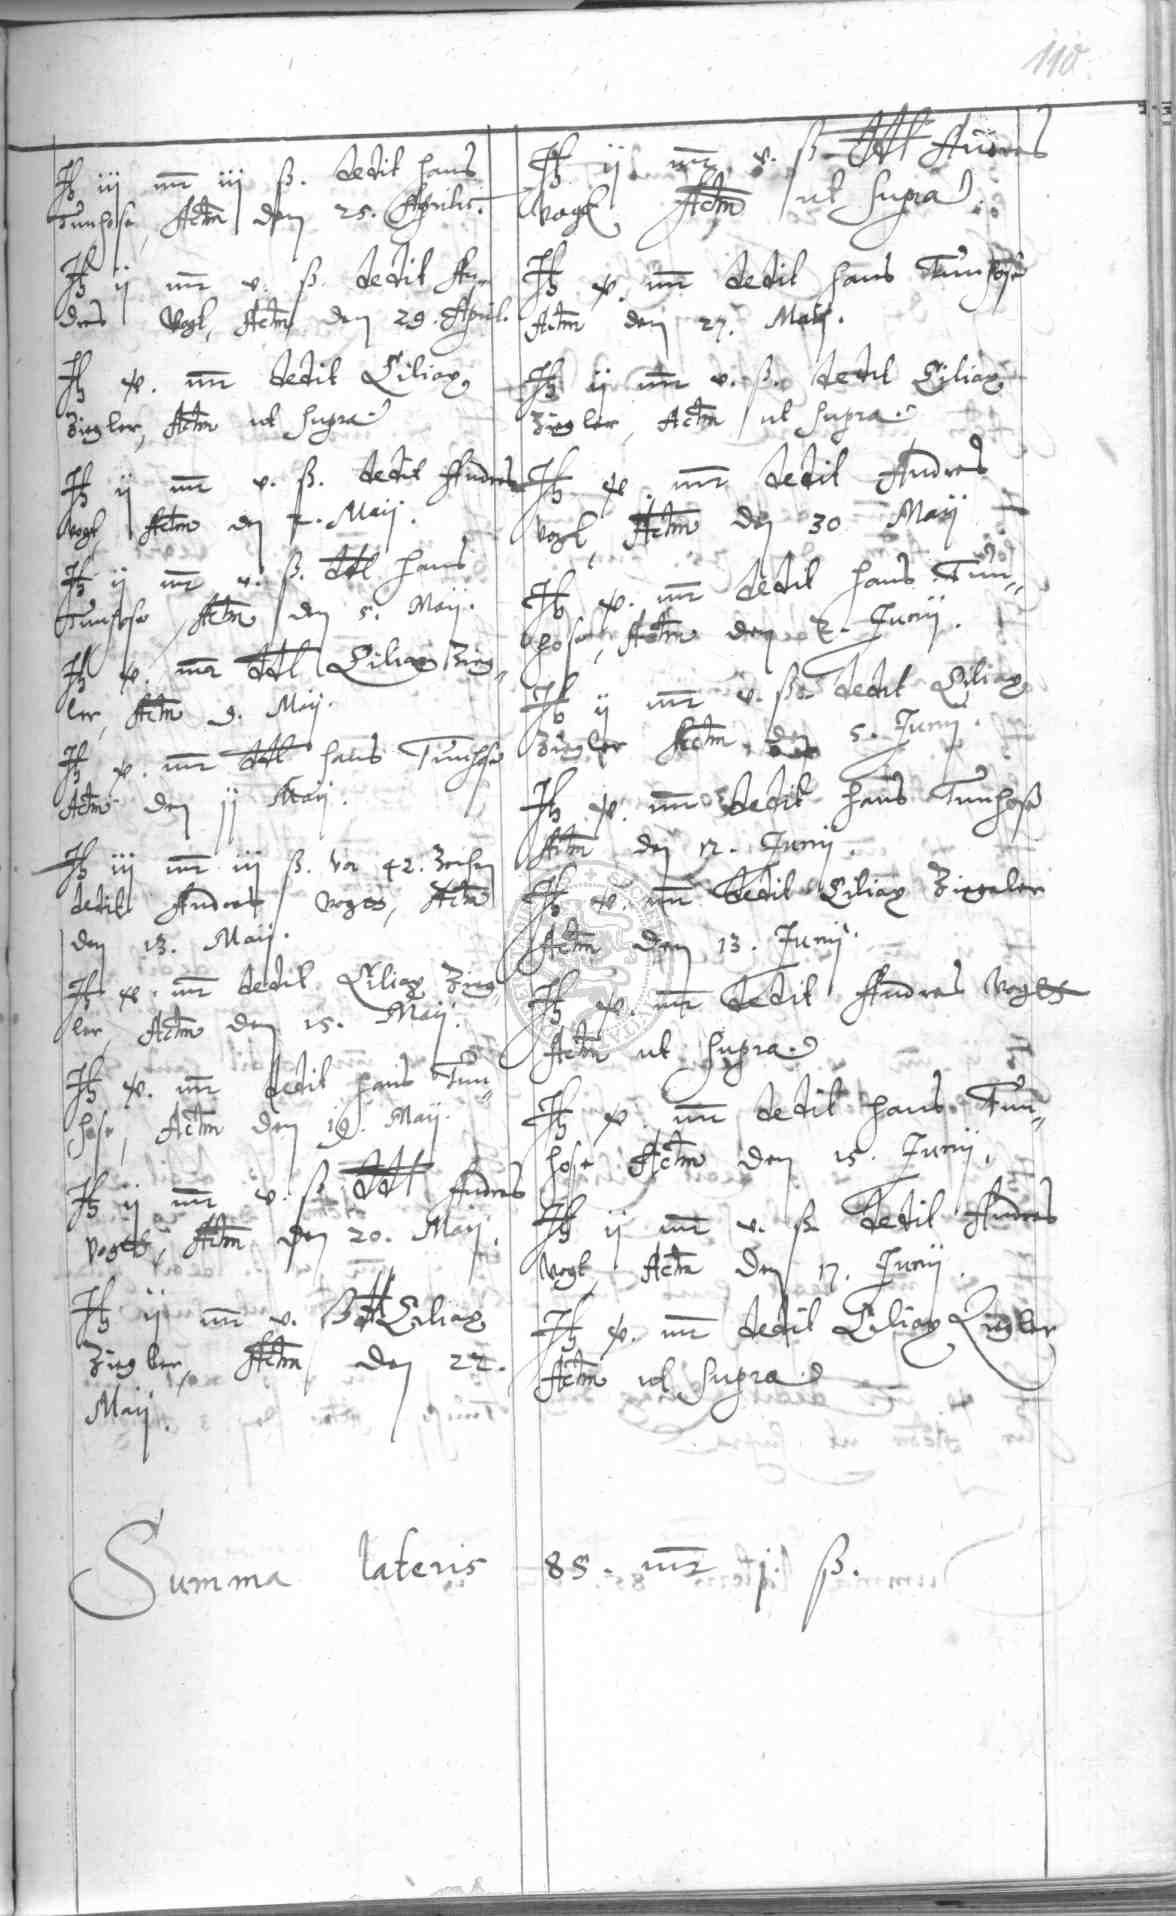 110.
It iij mr iij ß. dedit hans
Tunhose, Actm den 25. Aprilis.
It ij mr v. ß. dedit An=
dres Vogt, Actm den 29. April.
It v. mr dedit Ciliax
Ziegler, Actm ut supra.
It ij mr v. ß. dedit Andres
Vogt Actm den 2. Maij.
It ij mr v. ß. ddt hans
Tunhose Actm den 5. Maij.
It v. mr ddt Ciliax Zieg=
ler, Actm 9. Maij.
It v. mr ddt hans Tunhose
Actm den jj Maij.
It iij mr iij ß. von 42.
dedit Andres Voget, Actm
den 13. Maij.
It v. mr dedit Ciliax Zieg=
ler, Actm den 15. Maij.
It v. mr dedit hans Tun=
hose, Actm den 19. Maij.
It ij mr v. ß ddt Andres
Voget, Actm den 20. Maij.
It ij mr v. ß ddt Ciliax
Ziegler, Actm den 22.
Maij.
It ij mr v. ß ddt Andres
Vogt Actm ut supra.
It v. mr dedit hans Tunhose
Actm den 27. Maij.
It ij mr v. ß. dedit Ciliax
Ziegler, Actm ut supra.
It v. mr dedit Andres
Vogt, Actm den 30 Maij
It v. mr dedit hans Tun=
hose, Actm den 2. Junij.
It ij mr v. ß dedit Ciliax
Ziegler Actm den 5. Junij.
It v. mr dedit hans Tunhose
Actm den 12. Junij.
It v. mr dedit Ciliax Ziegeler
Actm den 13. Junij.
It v. mr dedit Andres Vogt
Actm ut supra.
It v. mr dedit hans Tun=
hose Actm den 15. Junij.
It ij mr v. ß dedit Andres
Vogt, Actm den 17. Junij.
It v. mr dedit Ciliax Ziegler
Actm ut supra.
Summa lateris 85. mr j. ß.